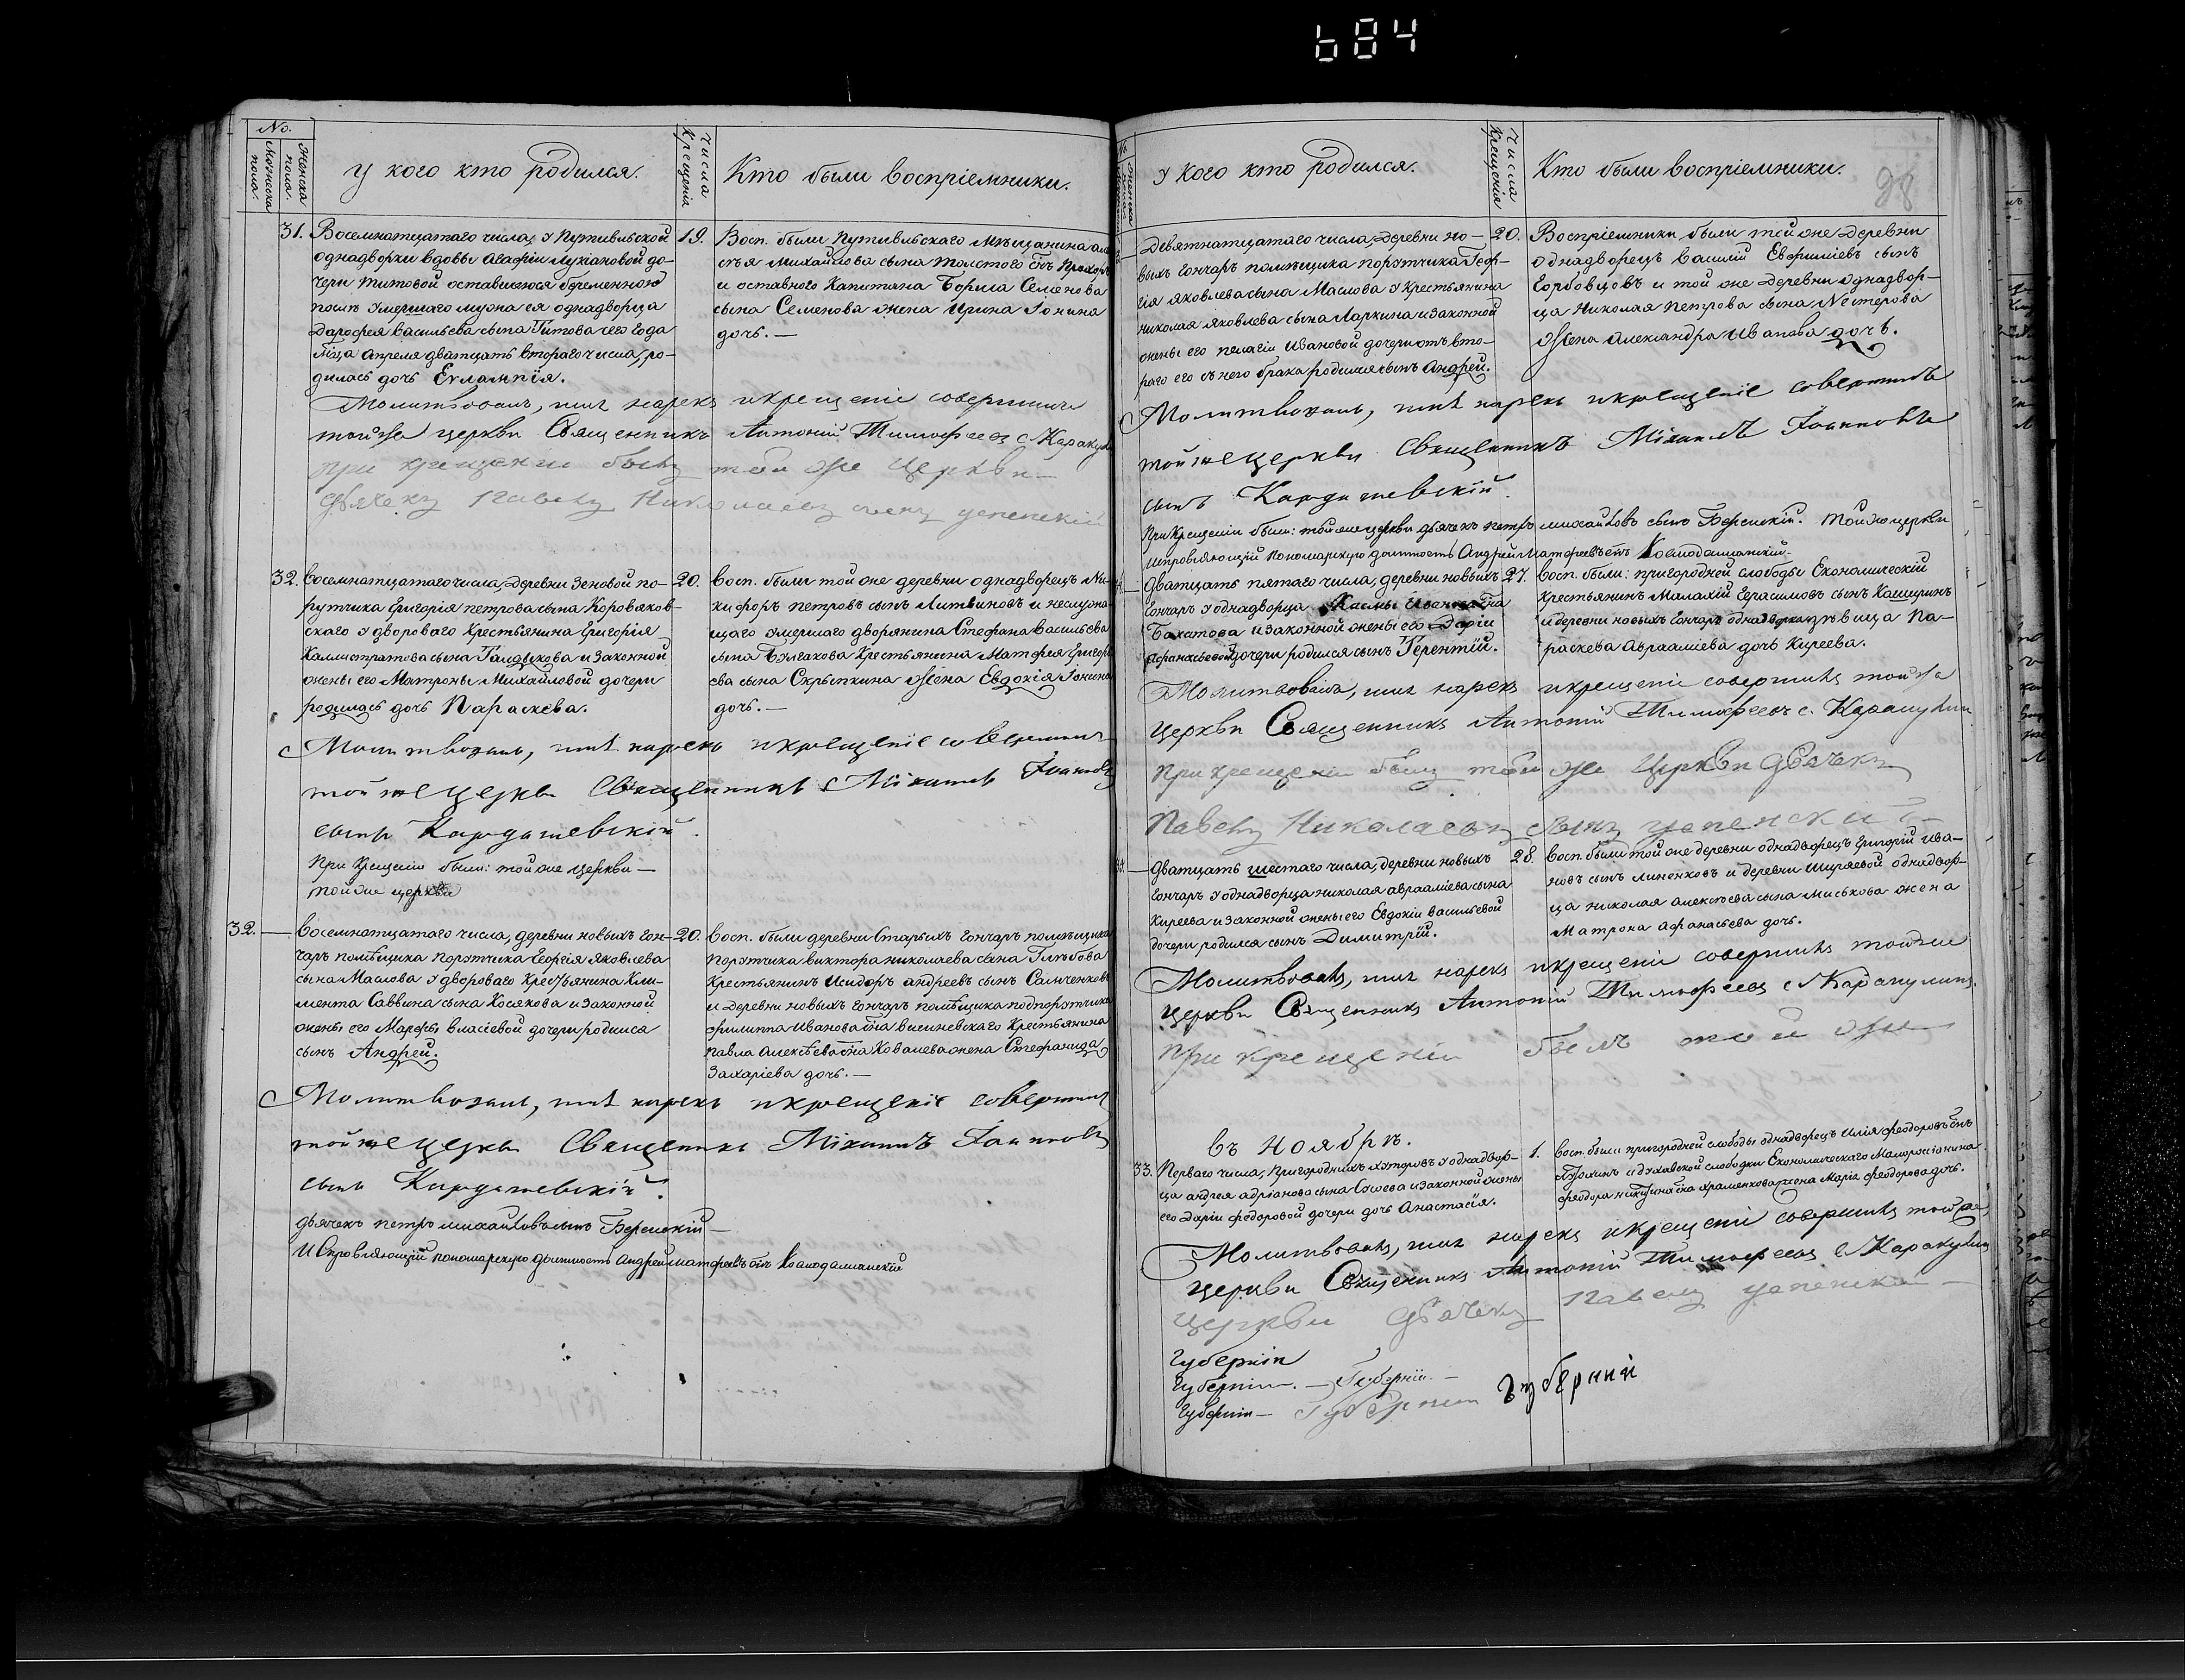 684
No.
Мужеска пола.
Женска пола.
У кого кто родился.
Числа Крещенія
Кто были воспріемники.
31. Восемнатцатаго числа, у Путивльской
однадворки вдовы Агафіи Лукіановой до-
чери Титовой оставшейся беременною
послѣ умершаго мужа ея однадворца
Дорофея Васильева сына Титова сего года
апреля дватцать втораго числа, ро-
дилась дочь Евлампія.
19. Восп. были Путивльскаго мѣщанина
Михайлова сына Толстого сынъ
и оставного Капитана Бориса Семенова
сына Семенова жена Ирина Іонина
дочь. —
Молитвовалъ, имя нарекъ и крещеніе совершилъ
тойже церкви Священникъ Антоній Тимофеевъ с. Каракулинъ
при крещеніи былъ той же церкви
дьячекъ Павелъ Николаевъ сынъ успенскій
32. Восемнатцатаго числа, деревни Зеновой по-
ручика Григорія Петрова сына Коровяков-
скаго у двороваго Крестьянина Григорія
Каллистратова сына и законной
жены его Матроны Михайловой дочери
родилась дочь Параскева.
20. Восп. были той же деревни однадворецъ Ни-
кифоръ Петровъ сынъ Литвиновъ и
умершаго дворянина Стефана Васильева
сына Булгакова Крестьянина Матфея Григорь
ева сына Скрыпкина жена Евдокія Іонина
дочь. —
Молитвовалъ, имя нарекъ и крещеніе совершилъ
той же церкви Священникъ Михаилъ Іоанновъ
сынъ Кардашевскій.
При Крещеніи были: той же церкви —
той же церкви
32. — Восемнатцатаго числа, деревни новыхъ гон-
чаръ помѣщика порутчика Георгія Яковлева
сына Маслова у двороваго Крестьянина Кли-
мента Саввина сына Косякова и законной
жены его Марфы Власіевой дочери родился
сынъ Андрей.
20. Восп. были деревни Старыхъ гончаръ помѣщика
порутчика Виктора Николаева сына Глѣбова
Крестьянинъ Исидоръ Андреевъ сынъ Самченковъ
и деревни новыхъ гончаръ помѣщика подпорутчика
Филиппа Иванова сна Вишневскаго Крестьянина
Павла Алексѣева сна Ковалева жена Стефанида
Захаріева дочь. —
Молитвовалъ, имя нарекъ и крещеніе совершилъ
той же церкви Священникъ Михаилъ Іоанновъ
сынъ Кардашевскій.
дьячекъ Петръ Михайловъ сынъ
И Справляющій пономарскую должность Андрей Матфеевъ снъ Космодаміанскій
У кого кто родился.
Числа Крещенія
Кто были воспріемники.
98
Девятнатцатаго числа, деревни но-
выхъ гончаръ помѣщика порутчика Геор-
гія Яковлева сына Маслова у крестьянина
Николая Яковлева сына Ларкина и законной
жены его Пелагіи Ивановой дочери отъ вто-
раго его съ него брака родился сынъ Андрей.
20. Воспріемники были той же деревни
однадворецъ Василій Евфиміевъ сынъ
Горбовцовъ и той же деревни однадвор-
ца Николая Петрова сына Нестерова
жена Александра Иванова дочь.
Молитвовалъ, имя нарекъ и крещеніе совершилъ
той же церкви Священникъ Михаилъ Іоанновъ
сынъ Кардашевскій.
При Крещеніи были: той же церкви дьячекъ Петръ Михайловъ сынъ Той же церкви
исправляющій пономарскую должность Андрей Матфеевъ снъ Космодаміанскій.
Дватцать пятаго числа, деревни новыхъ
гончаръ у однадворца Касмы
Бахатова и законной жены его Даріи
Афанасьевой дочери родился сынъ Терентій.
27. Восп. были: пригородней слободы Економическій
Крестьянинъ Малахій Герасимовъ сынъ
и деревни новыхъ гончаръ дѣвица Па-
раскева Авраамиева дочь Киреева.
Молитвовалъ, имя нарекъ и крещеніе совершилъ тойже
церкви Священникъ Антоній Тимофеевъ с. Каракулинъ
При крещеніи былъ той же Церкви Дьячекъ
Павелъ Николаевъ сынъ успенскій
Дватцать шестаго числа, деревни новыхъ
гончаръ у однадворца Николая Авраамиева сына
Киреева и законной жены его Евдокіи Васильевой
дочери родился сынъ Димитрій.
28. Восп. были той же деревни однадворецъ Григорій Ива-
новъ сынъ Линенковъ и деревни Ширяевой однадвор-
ца Николая Алексѣева сына Миськова жена
Матрона Афанасьева дочь.
Молитвовалъ, имя нарекъ и крещеніе совершилъ тойже
церкви Священникъ Антоній Тимофеевъ с. Каракулинъ.
При крещеніи былъ той же
Въ Ноябрѣ.
33. Перваго числа, Пригородныхъ хуторовъ у однадвор-
ца Андрея Адріанова сына и законной жены
его Даріи Федоровой дочери дочь Анастасія.
1. Восп. были пригородней слободы однадворецъ Илія Феодоровъ снъ
и духавской слободки Економическаго Малоросіянина
Феодора жена Марія Феодорова дочь.
Молитвовалъ, имя нарекъ и крещеніе совершилъ тойже
церкви Священникъ Антоній Тимофеевъ с. Каракулинъ
церкви дьячекъ Павелъ успенскій
Губерніи
Губерніи. — Губерніи. —
Губерніи — Губерніи Губерніи